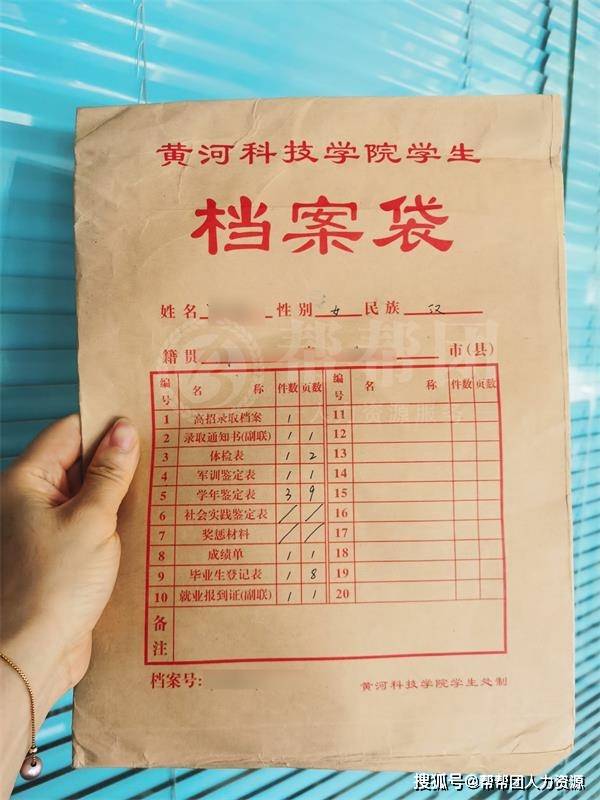 黄河科技学院学生
档案袋
姓名 性别 女 民族 汉
籍贯 市(县)
编号 名称 件数 页数 编号 名称 件数 页数
1 高招录取档案 1 11
2 录取通知书(副联) 1 1 12
3 体检表 1 2 13
4 军训鉴定表 1 1 14
5 学年鉴定表 3 9 15
6 社会实践鉴定表 / / 16
7 奖惩材料 / / 17
8 成绩单 1 1 18
9 毕业生登记表 1 8 19
10 就业报到证(副联) 1 1 20
备注
档案号:
黄河科技学院学生处制
帮帮团
人力资源服务
搜狐号@帮帮团人力资源